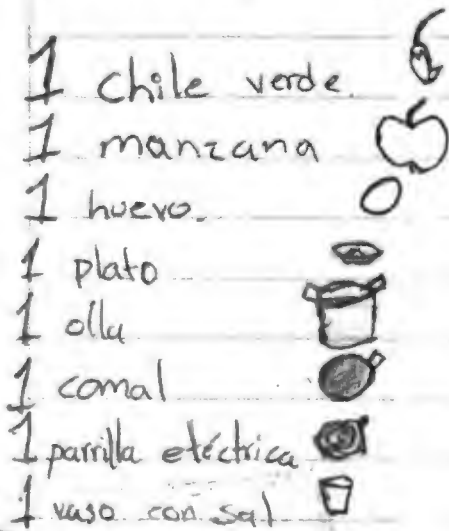 1 chile verde.
1 manzana
1 huevo.
1 plato
1 olla
1 comal
1 parrilla eléctrica
1 vaso con sal